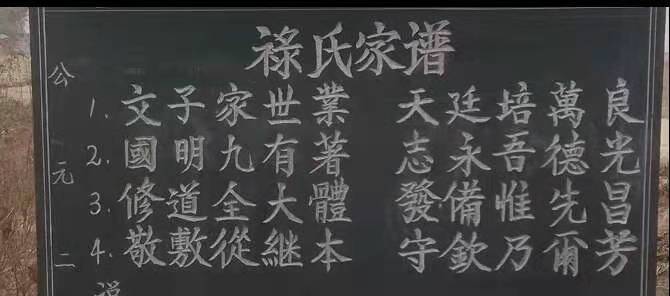 祿氏家谱
1. 文子家世業 天廷培萬良
2. 國明九有著 志永吾德光
3. 修道全大體 發備惟先昌
4. 敬敷從継本 守欽乃爾芳
公元二